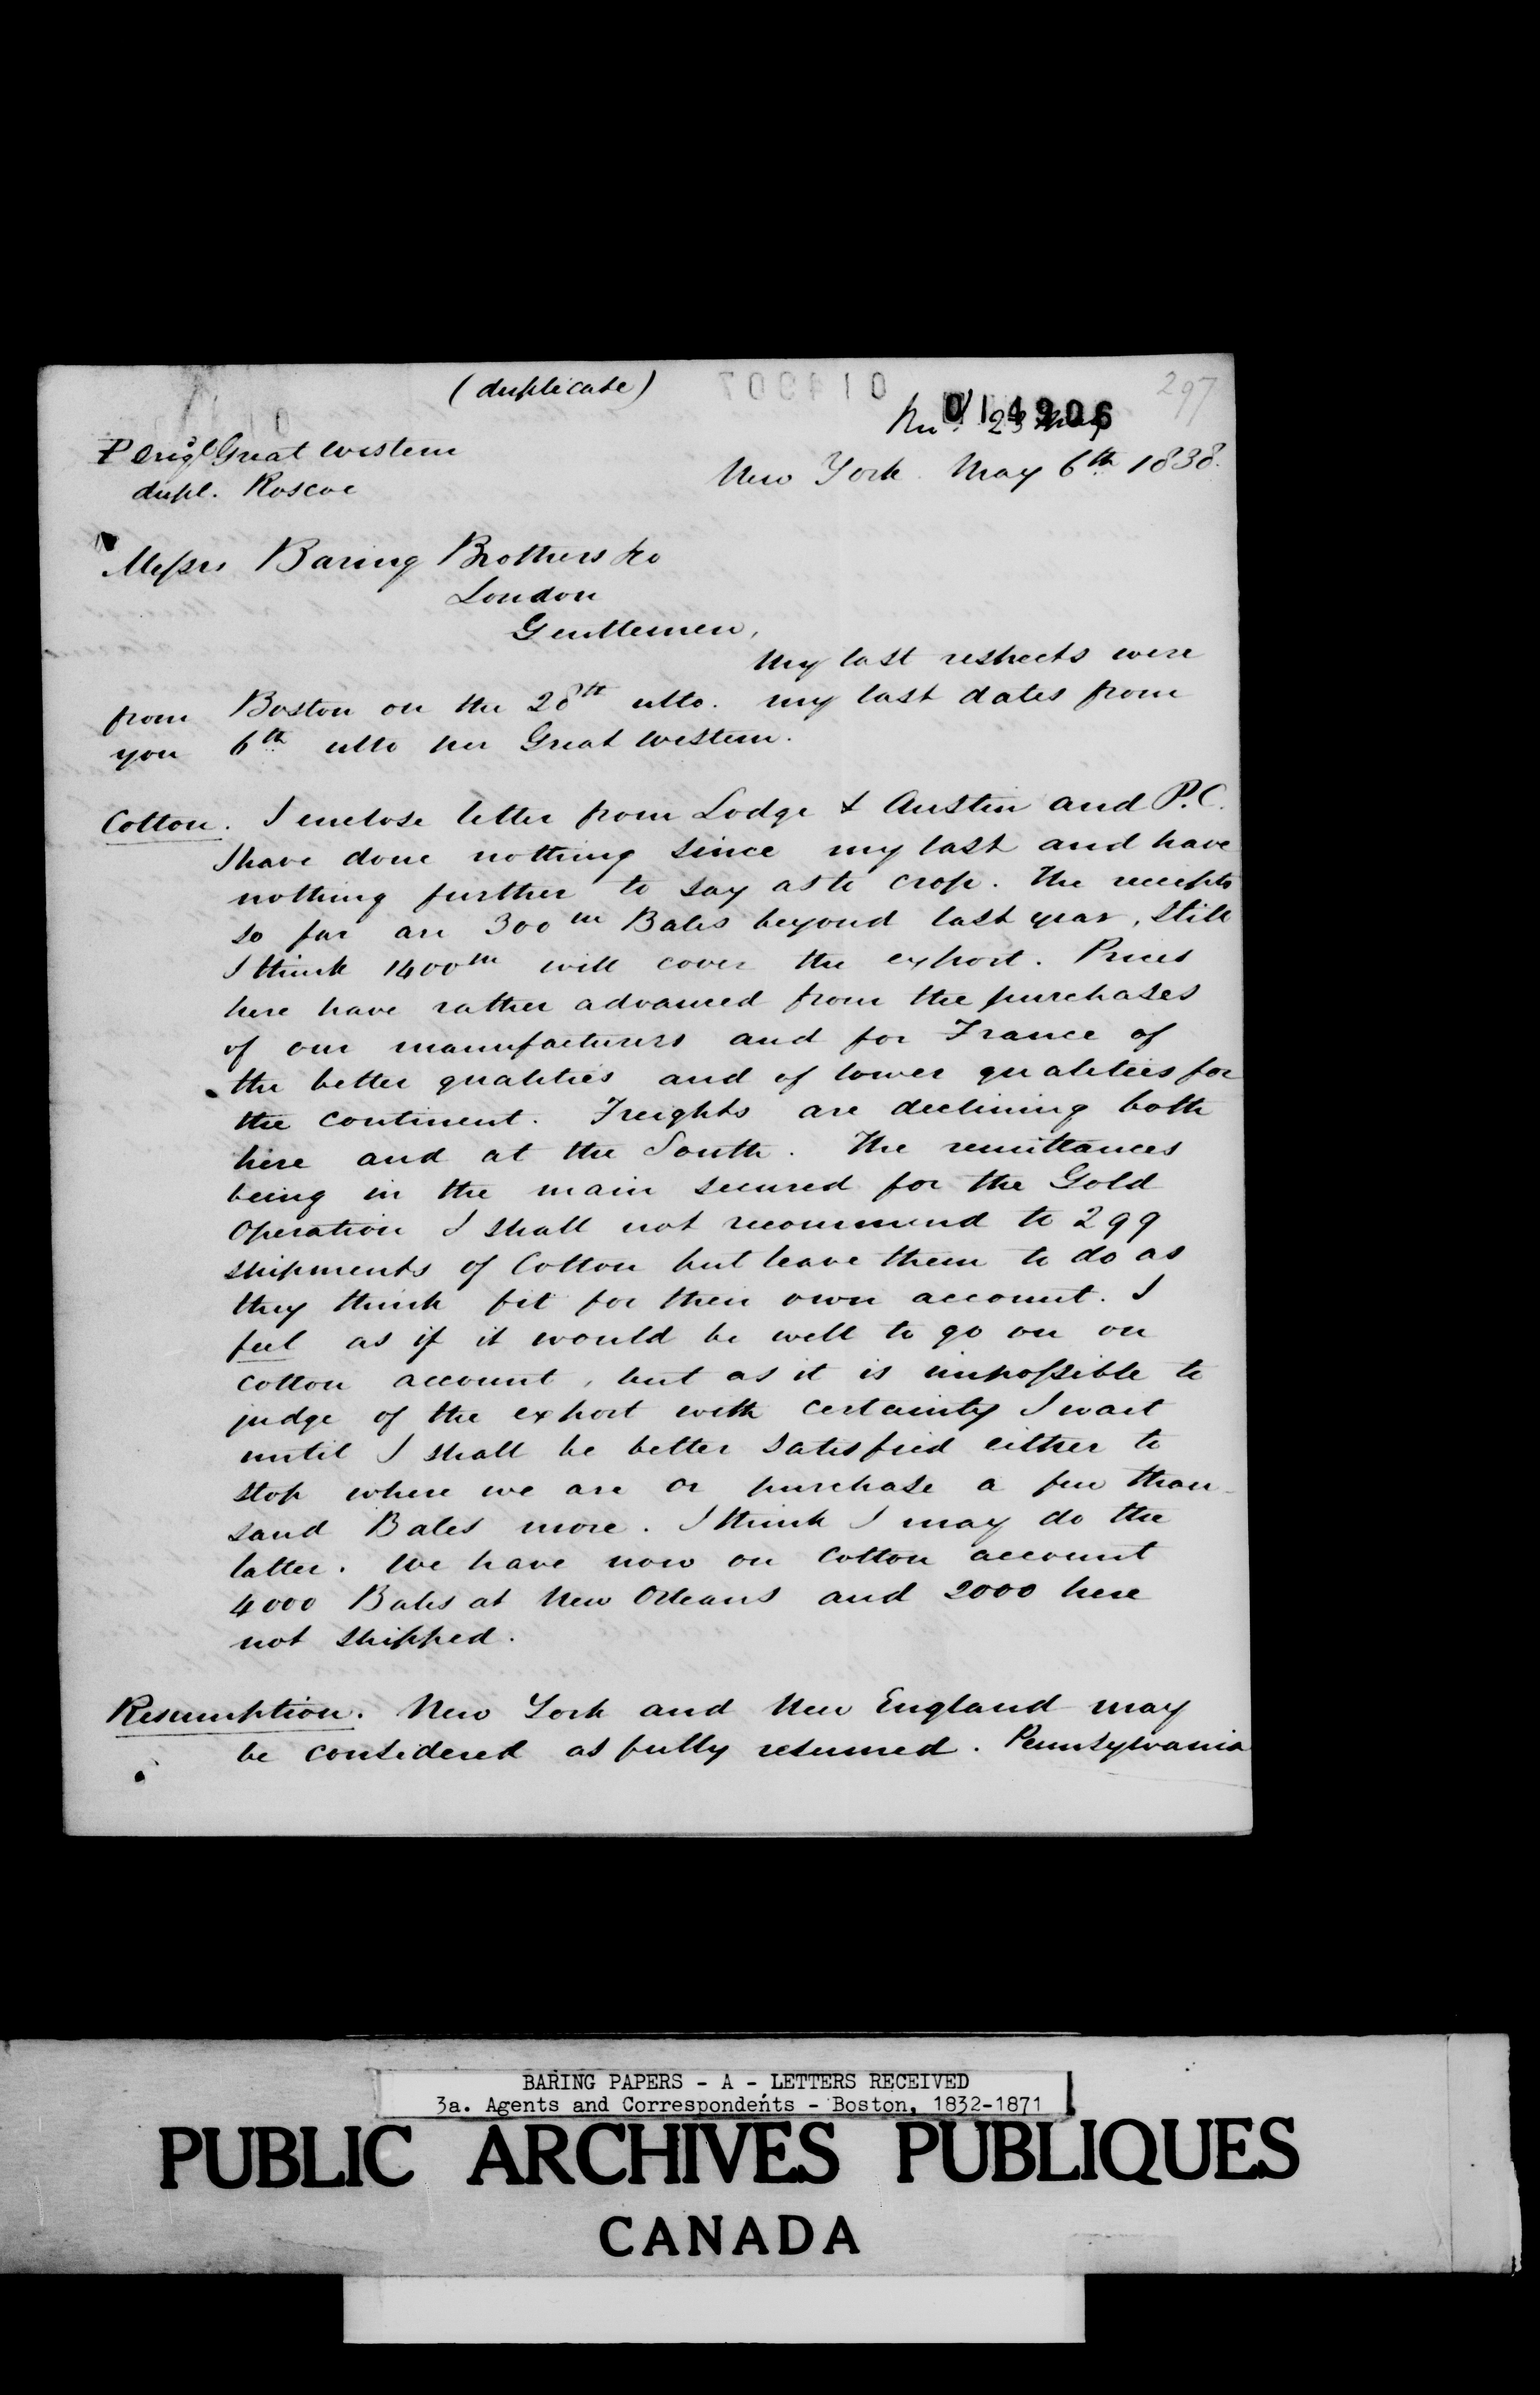 (duplicate)
014907
297
014906
Rec'd 23 May
P Orig'l Great Western
dupl. Roscoe
New York. May 6th 1838.
Messrs Baring Brothers & Co
London
Gentlemen,
My last respects were
from Boston on the 28th ulto. my last dates from
you 6th ulto per Great Western.
Cotton. I enclose letter from Lodge & Austin and P.C.
I have done nothing since my last and have
nothing further to say as to crop. The receipts
so far are 300m Bales beyond last year, still
I think 1400m will cover the export. Prices
here have rather advanced from the purchases
of our manufacturers and for France of
the better qualities and of lower qualities for
the continent. Freights are declining both
here and at the South. The remittances
being in the main secured for the Gold
Operation I shall not recommend to 299
shipments of Cotton but leave them to do as
they think fit for their own account. I
feel as if it would be well to go on on
cotton account, but as it is impossible to
judge of the export with certainty I wait
until I shall be better satisfied either to
stop where we are or purchase a few thou-
sand Bales more. I think I may do the
latter. We have now on Cotton account
4000 Bales at New Orleans and 2000 here
not shipped.
Resumption. New York and New England may
be considered as fully resumed. Pennsylvania
BARING PAPERS - A - LETTERS RECEIVED
3a. Agents and Correspondents - Boston, 1832-1871
PUBLIC ARCHIVES PUBLIQUES
CANADA